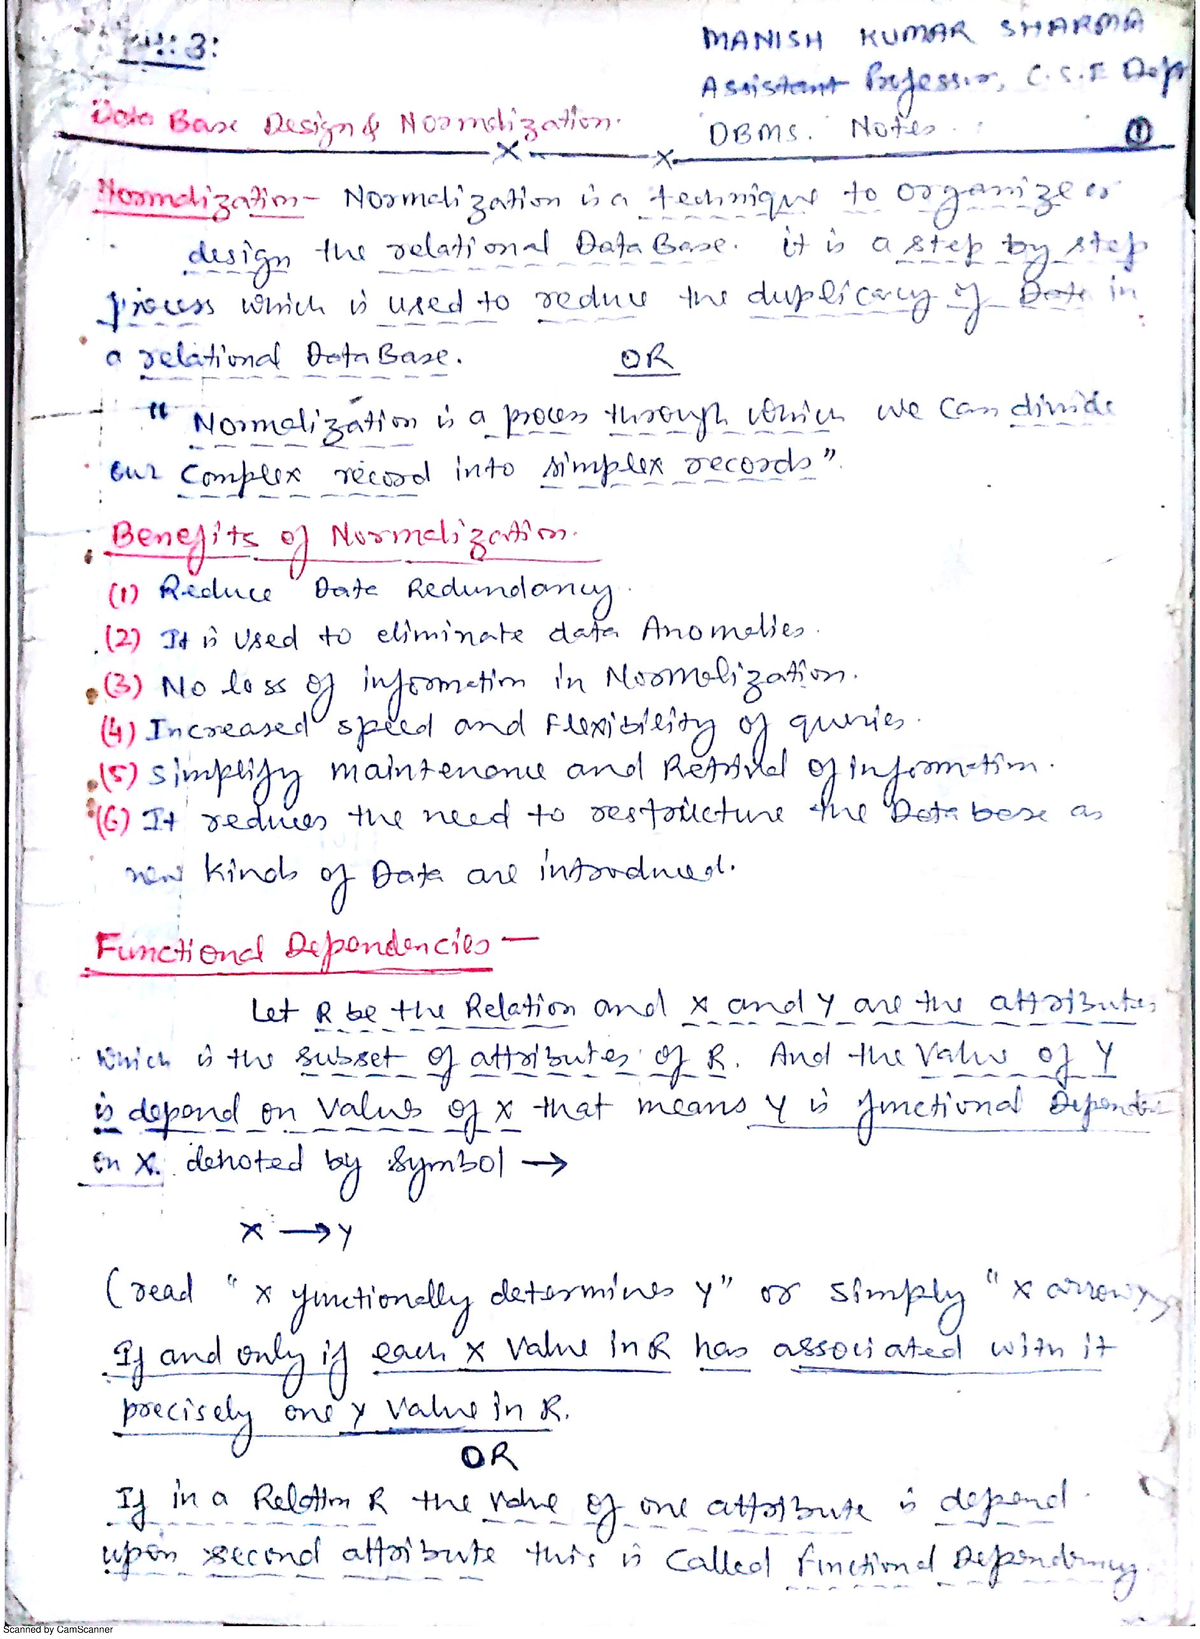 3:
MANISH KUMAR SHARMA
Assistant Professor, C.S.E Dep
Data Base Design & Normalization.
DBMS. Notes
1
Normalization - Normalization is a technique to organize or
design the relational DataBase. it is a step by step
process which is used to reduce the duplicacy of Data in
a relational DataBase.
OR
" Normalization is a process through which we can divide
our complex record into simplex records".
Benefits of Normalization.
(1) Reduce Data Redundancy.
(2) It is used to eliminate data Anomalies.
(3) No loss of information in Normalization.
(4) Increased speed and Flexibility of queries.
(5) Simplify maintenance and Retrival of information.
(6) It reduces the need to restructure the Database as
new kinds of Data are introduced.
Functional Dependencies —
Let R be the Relation and X and Y are the attributes
which is the subset of attributes of R. And the Value of Y
is depend on Value of X that means Y is functional Dependent
on X. denoted by symbol →
X → Y
(read " X functionally determines Y" or simply " X arrow Y
If and only if each X Value in R has associated with it
precisely one Y Value in R.
OR
If in a Relation R the value of one attribute is depend
upon second attribute this is called functional Dependency.
Scanned by CamScanner